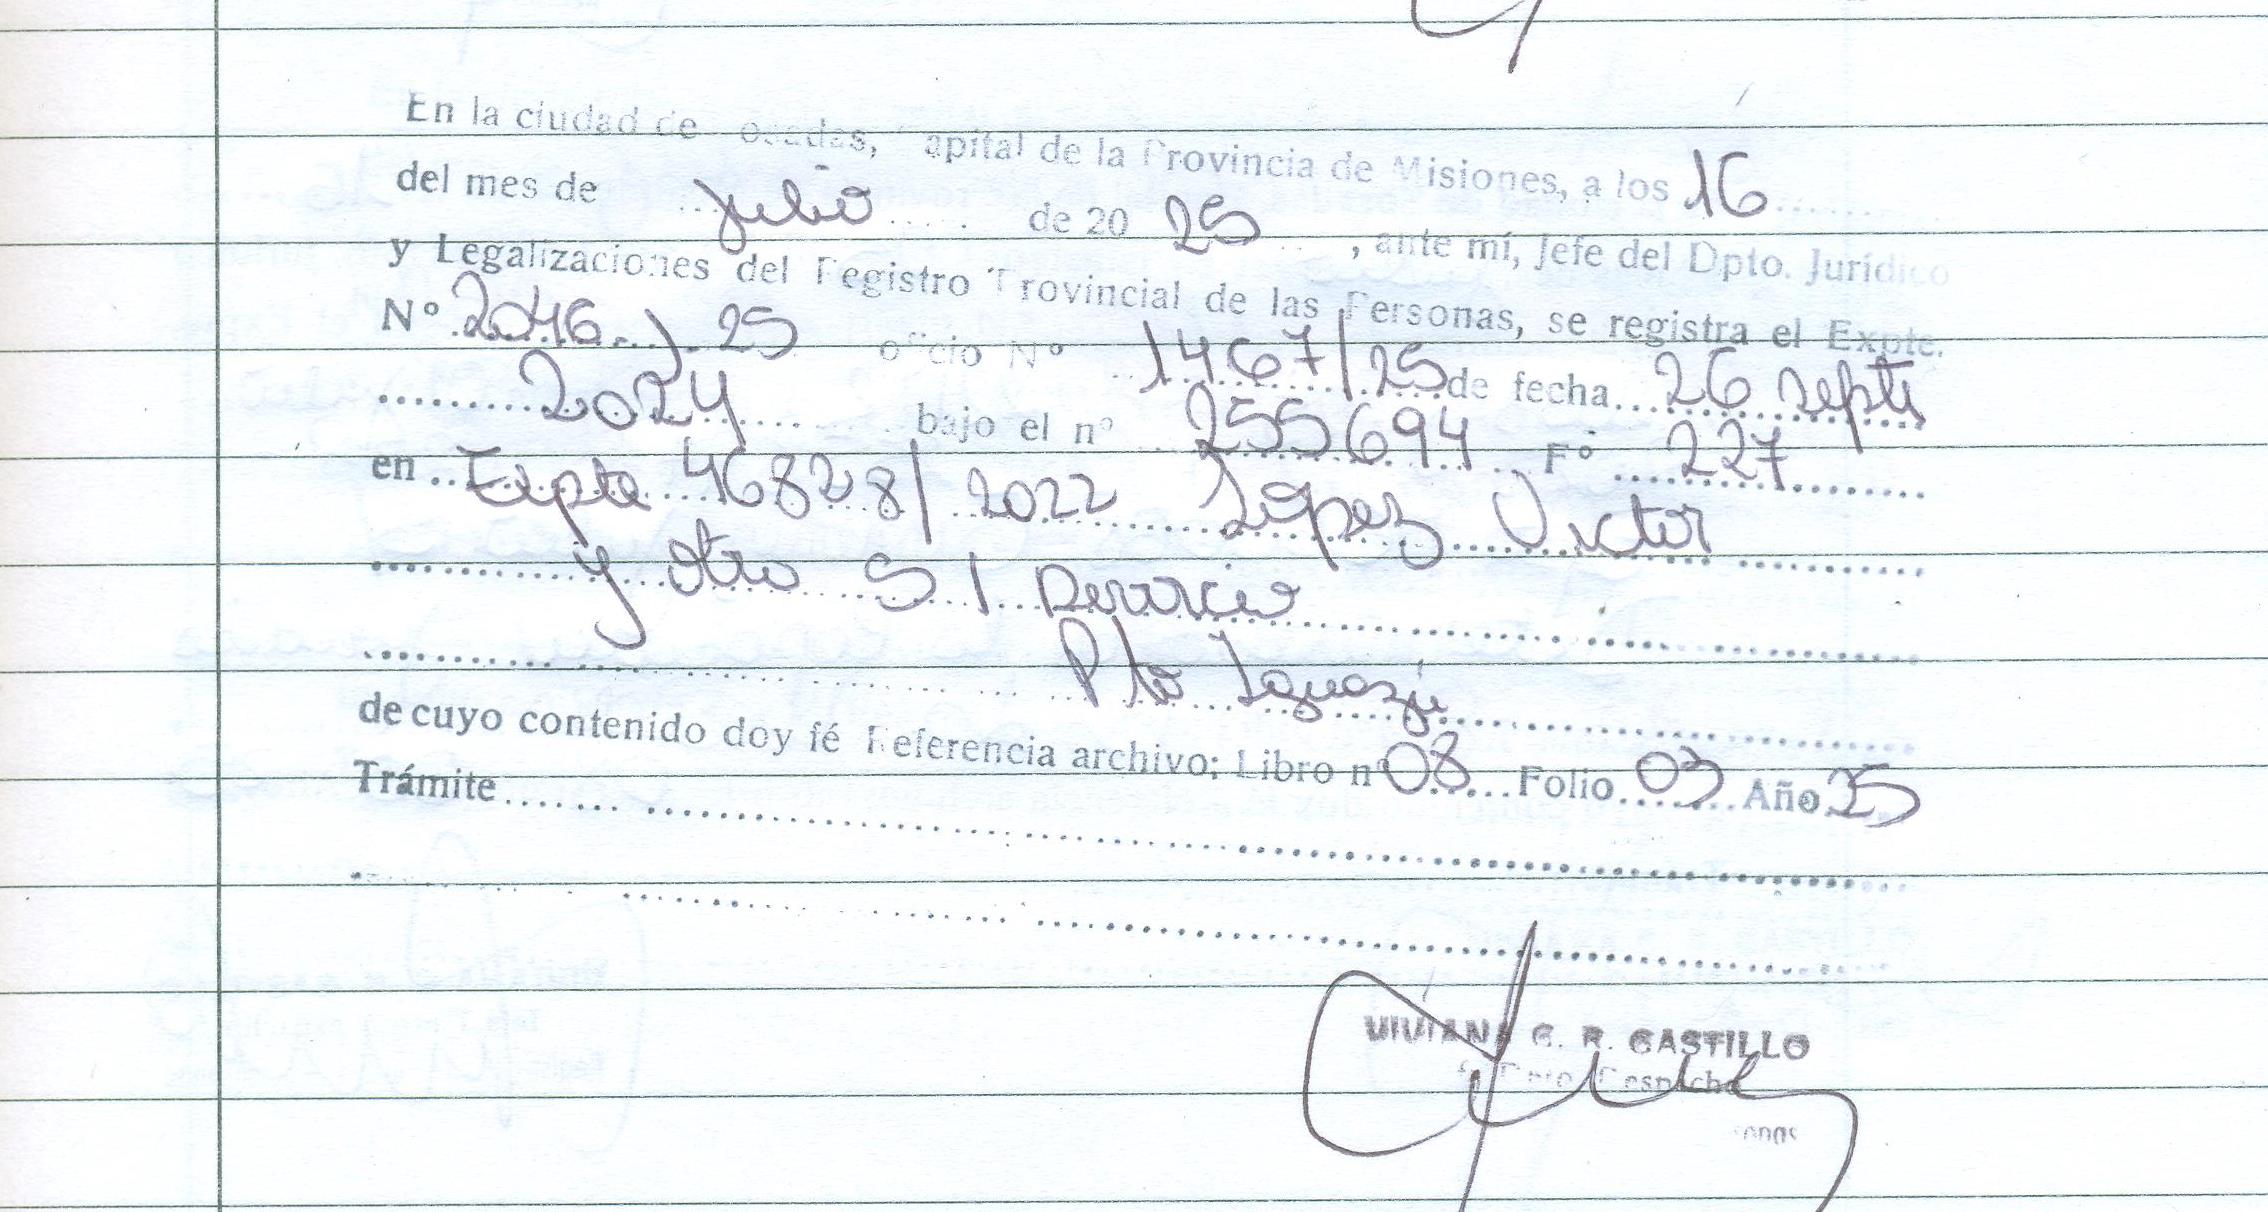 En la ciudad de Posadas, Capital de la Provincia de Misiones, a los 16
del mes de julio de 20 25 , ante mí, Jefe del Dpto. Jurídico
y Legalizaciones del Registro Provincial de las Personas, se registra el Expte.
Nº 2046 / 25 oficio Nº 1467/25 de fecha 26 septi
2024 bajo el nº 255694 Fº 227
en Expte 46828/2022 López Victor
y otro S/ Divorcio
Pto Iguazú
de cuyo contenido doy fé Referencia archivo: Libro nº 08 Folio 03 Año 25
Trámite
VIVIANA G. R. CASTILLO
Dpto. Despacho